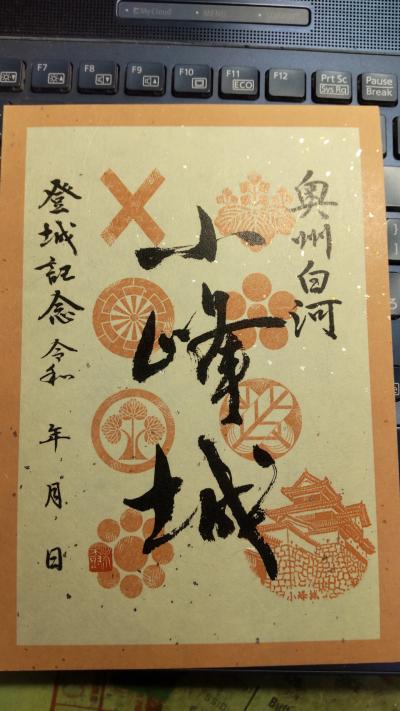 MyCloud
MENU
F7
F8
F9
F10
F11
ECO
F12
Prt Sc
Sys Rq
Pause
Break
奥州白河
小峰城
登城記念 令和 年 月 日
小峰城